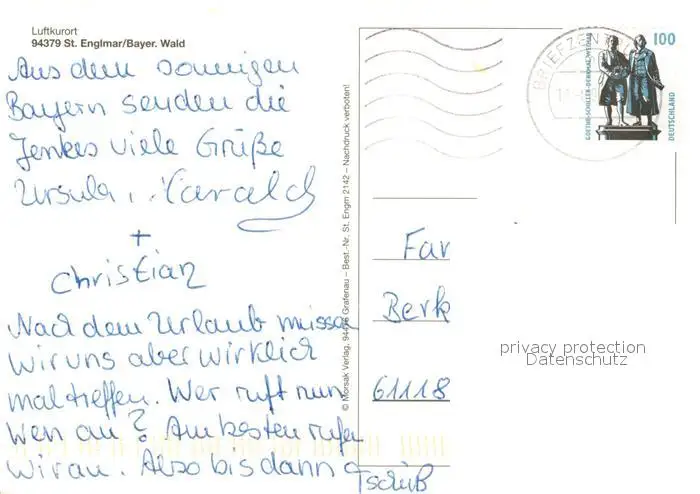 Luftkurort
94379 St. Englmar/Bayer. Wald
Aus dem sonnigen
Bayern senden die
Jenkes viele Grüße
Ursula, Harald
+
Christian
Nach dem Urlaub müssen
wir uns aber wirklich
mal treffen. Wer ruft nun
wen an? Am besten rufen
wir an. Also bis dann
Tschüß
© Morsak Verlag, 94476 Grafenau – Best.-Nr. St. Engm 2142 – Nachdruck verboten!
BRIEFZENTRUM
GOETHE-SCHILLER-DENKMAL WEIMAR
100
DEUTSCHLAND
Fam
Berk
61118
privacy protection
Datenschutz